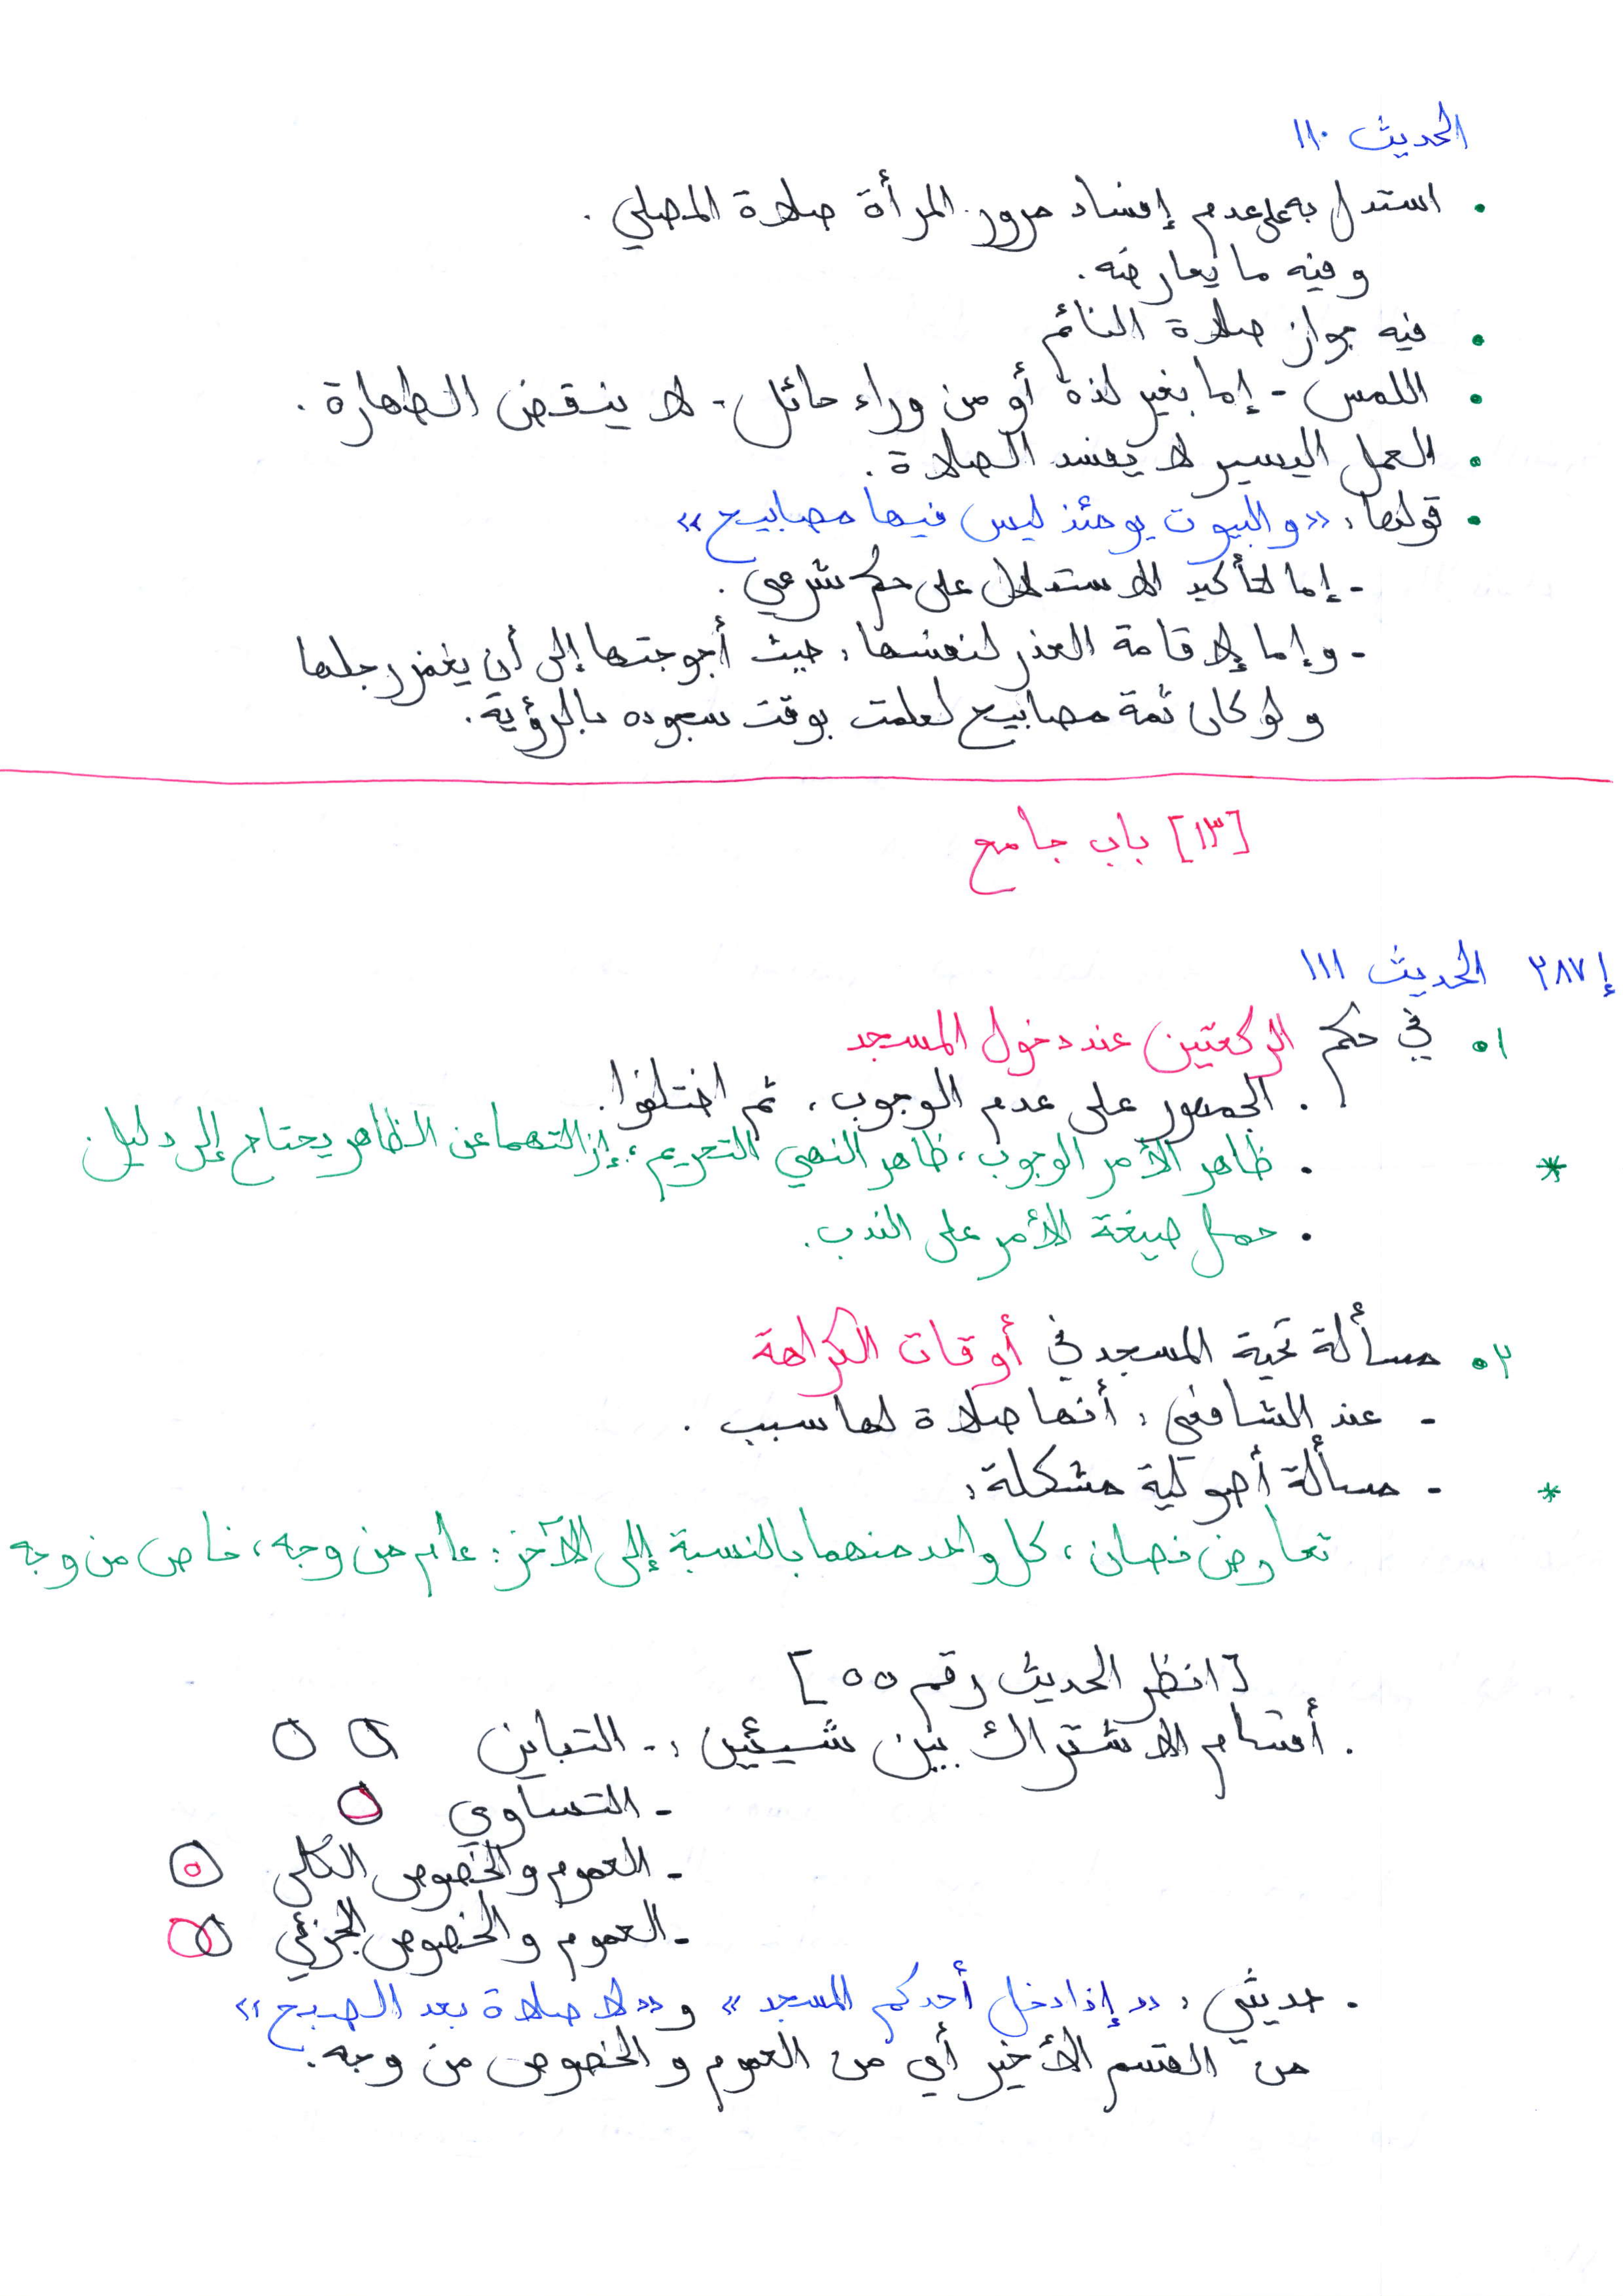 الحديث ١١٠
• استدل به على عدم إفساد مرور المرأة صلاة المصلي.
وفيه ما يعارضه.
• فيه جواز صلاة النائم
• اللمس - إما بغير لذة أو من وراء حائل - لا ينقض الطهارة.
• العمل اليسير لا يفسد الصلاة.
• قولها: «والبيوت يومئذ ليس فيها مصابيح»
- إما لتأكيد الاستدلال على حكم شرعي.
- وإما لإقامة العذر لنفسها، حيث أحوجتها إلى أن يغمز رجلها
ولو كان ثمة مصابيح لعلمت بوقت سجوده بالرؤية.
[١٣] باب جامع
إ ٢٨٧ الحديث ١١١
١• في حكم الركعتين عند دخول المسجد
. الجمهور على عدم الوجوب، ثم اختلفوا.
* . ظاهر الأمر الوجوب، ظاهر النهي التحريم، إزالتهما عن الظاهر يحتاج إلى دليل.
. حمل صيغة الأمر على الندب.
٢• مسألة تحية المسجد في أوقات الكراهة
- عند الشافعي: أنها صلاة لها سبب.
* - مسألة أصولية مشكلة:
تعارض نصان، كل واحد منهما بالنسبة إلى الآخر: عام من وجه، خاص من وجه
[انظر الحديث رقم ٥٥]
. أقسام الاشتراك بين شيئين: - التباين
- التساوي
- العموم والخصوص الكلي
- العموم والخصوص الجزئي
. حديثي: «إذا دخل أحدكم المسجد» و «لا صلاة بعد الصبح»
من القسم الأخير أي من العموم والخصوص من وجه.